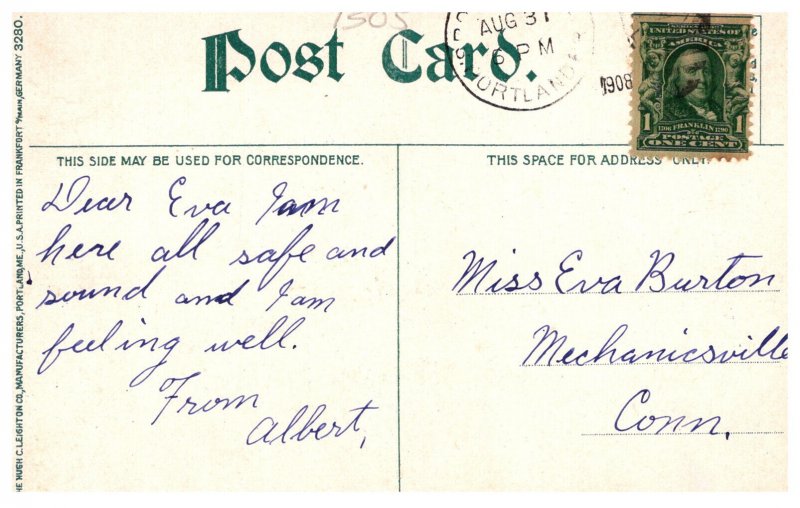 1505
Post Card.
AUG 31
6 PM
PORTLAND
1908
UNITED STATES OF
AMERICA
1706 FRANKLIN 1790
POSTAGE
1 ONE CENT 1
THIS SIDE MAY BE USED FOR CORRESPONDENCE.
THIS SPACE FOR ADDRESS ONLY.
Dear Eva I am
here all safe and
sound and I am
feeling well.
From
Albert,
Miss Eva Burton
Mechanicsville
Conn.
HE HUGH C. LEIGHTON CO., MANUFACTURERS, PORTLAND, ME., U.S.A. PRINTED IN FRANKFORT o/MAIN, GERMANY 3280.